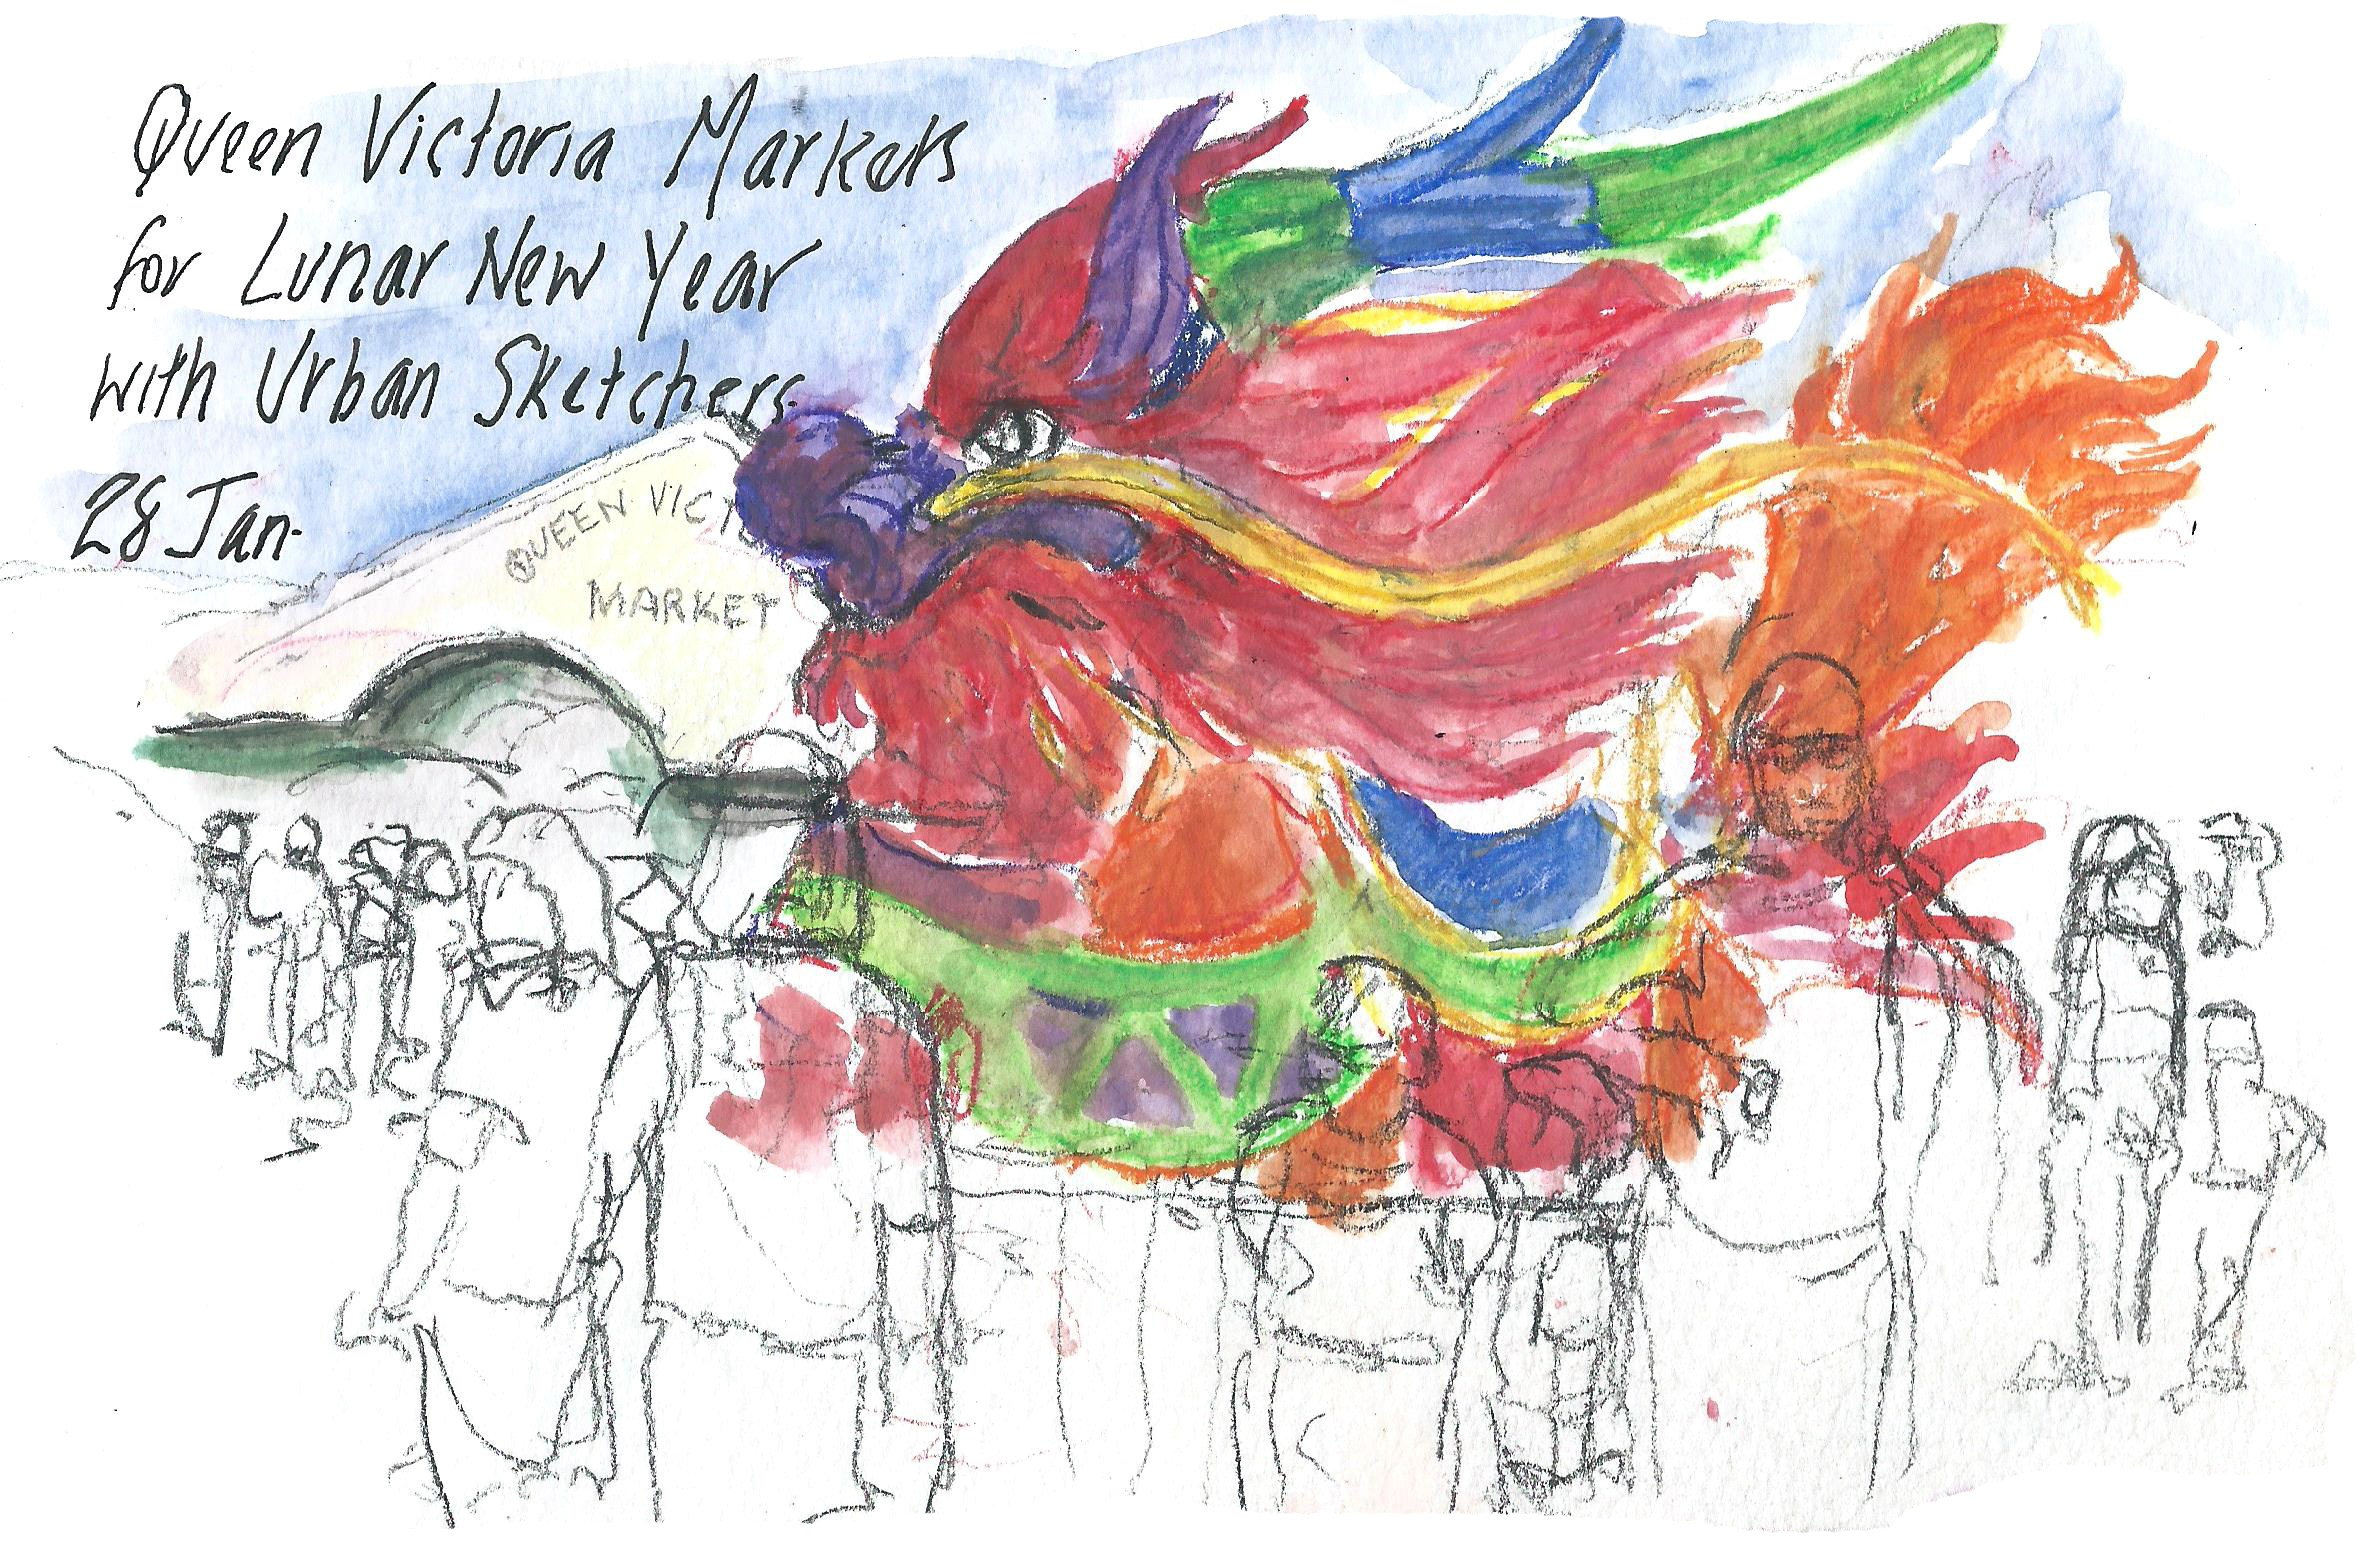 Queen Victoria Markets
for Lunar New Year
with Urban Sketchers.
28 Jan.
QUEEN VICT
MARKET